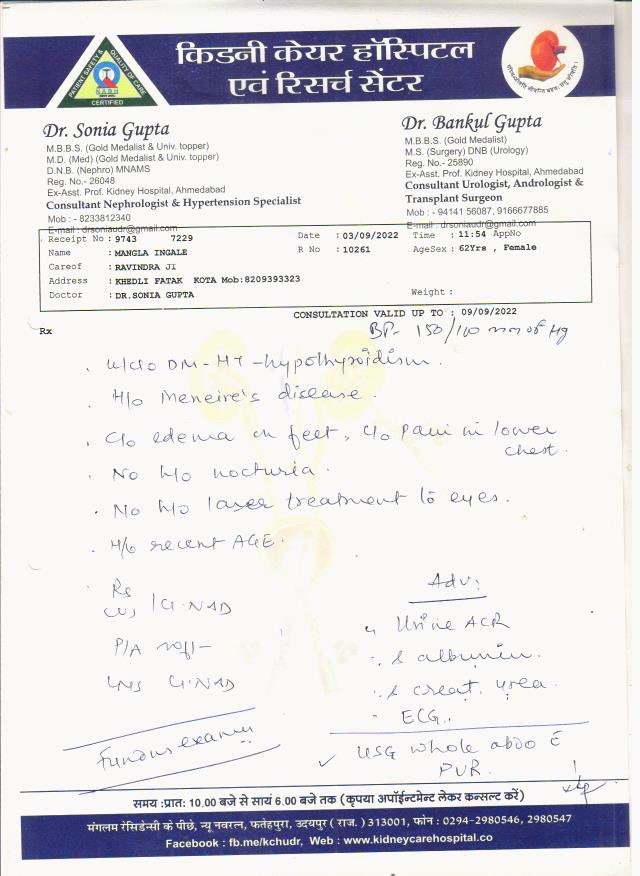 किडनी केयर हॉस्पिटल
एवं रिसर्च सेंटर
PATIENT SAFETY & QUALITY OF CARE
N.A.B.H
CERTIFIED
Dr. Sonia Gupta
M.B.B.S. (Gold Medalist & Univ. topper)
M.D. (Med) (Gold Medalist & Univ. topper)
D.N.B. (Nephro) MNAMS
Reg. No.- 26048
Ex-Asst. Prof. Kidney Hospital, Ahmedabad
Consultant Nephrologist & Hypertension Specialist
Mob : - 8233812340
E-mail : drsoniaudr@gmail.com
Dr. Bankul Gupta
M.B.B.S. (Gold Medalist)
M.S. (Surgery) DNB (Urology)
Reg. No.- 25890
Ex-Asst. Prof. Kidney Hospital, Ahmedabad
Consultant Urologist, Andrologist &
Transplant Surgeon
Mob : - 94141 56087, 9166677885
E-mail : drsoniaudr@gmail.com
Receipt No : 9743 7229 Date : 03/09/2022 Time : 11:54 AppNo
Name : MANGLA INGALE R No : 10261 AgeSex : 62Yrs , Female
Careof : RAVINDRA JI
Address : KHEDLI FATAK KOTA Mob:8209393323
Doctor : DR.SONIA GUPTA Weight :
CONSULTATION VALID UP TO : 09/09/2022
Rx
BP- 150/100 mm of Hg
K/C/O DM-HT-hypothyroidism.
H/o Meneire's disease.
C/o edema on feet, C/o Pain in lower
chest.
No H/o nocturia.
No H/o laser treatment to eyes.
H/o recent AGE.
Rs
CVS
P/A
CNS
Fundus exam
Adv:
Urine ACR
S albumin.
S creat, urea.
ECG.
USG whole abdo c̄
PVR.
समय :प्रात: 10.00 बजे से सायं 6.00 बजे तक (कृपया अपॉईन्टमेन्ट लेकर कन्सल्ट करें)
मंगलम रेसिडेन्सी के पीछे, न्यू नवरत्न, फतेहपुरा, उदयपुर ( राज. ) 313001, फोन : 0294-2980546, 2980547
Facebook : fb.me/kchudr, Web : www.kidneycarehospital.co